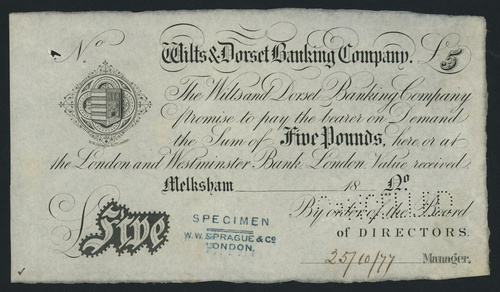 No Wilts & Dorset Banking Company. £5
The Wilts and Dorset Banking Company
promise to pay the bearer on Demand
the Sum of Five Pounds, here, or at
the London and Westminster Bank London Value received.
Melksham 18 No
By order of the Board
of DIRECTORS.
£Five
SPECIMEN
W.W. SPRAGUE & Co
LONDON.
25/10/77 Manager.